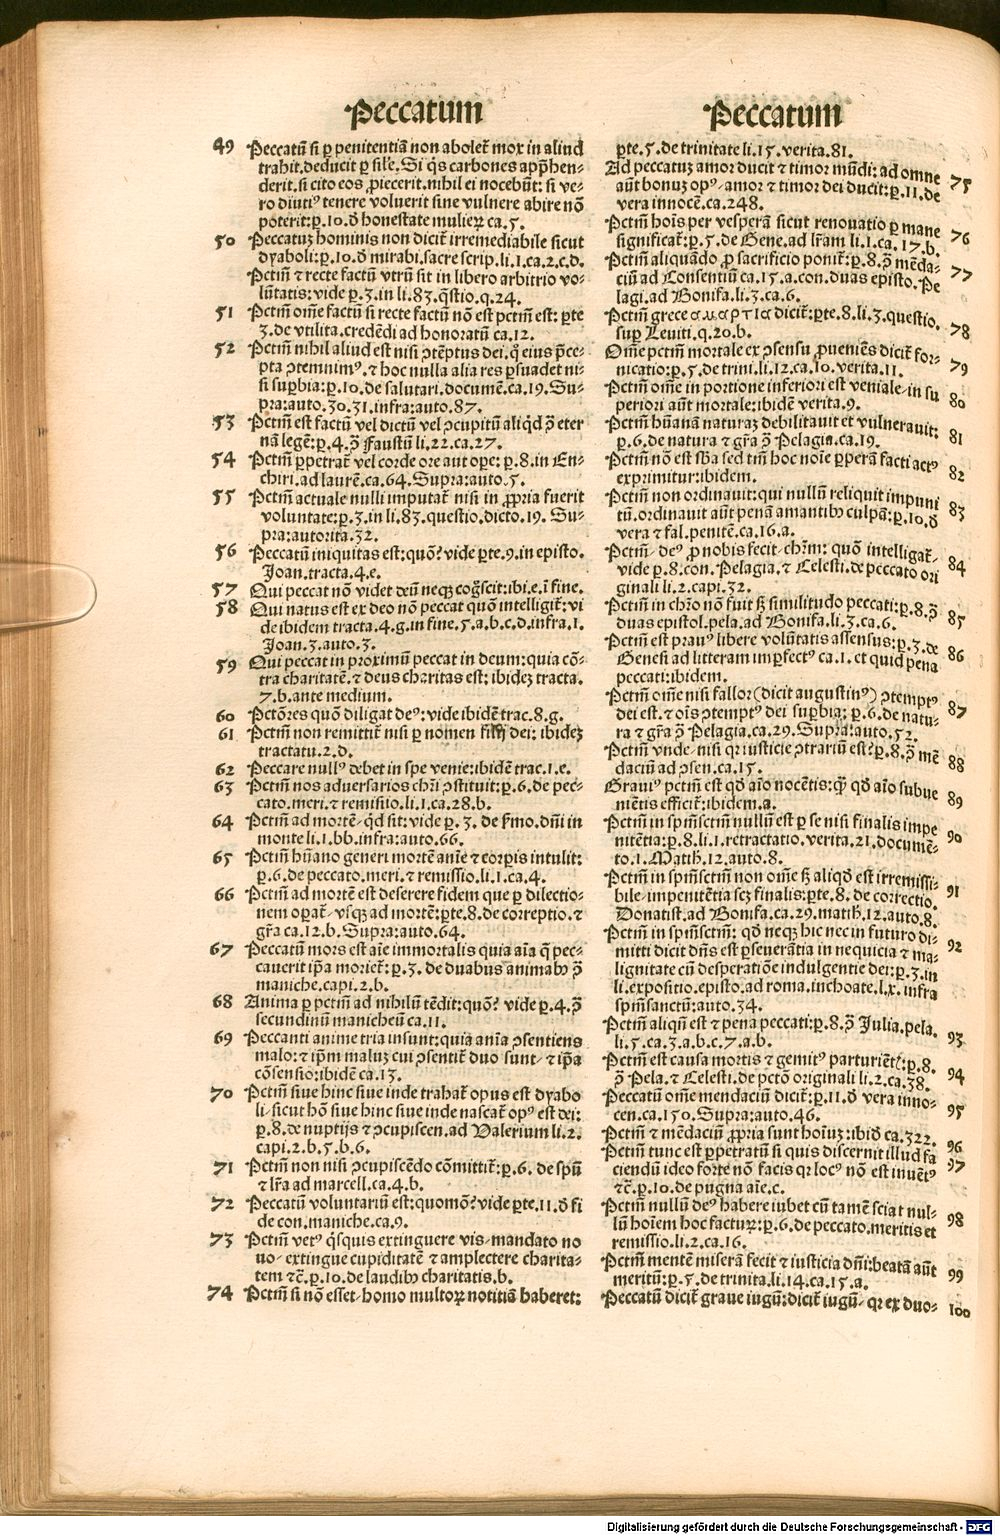 Peccatum
49 Peccatū si ꝑ penitentiā non abolet᷑ mox in aliud
trahit.deducit ꝑ sil'e.Si q̄s carbones app̄hen-
derit.si cito eos ꝓiecerit.nihil ei nocebūt: si ve-
ro diuti⁹ tenere voluerit sine vulnere abire nō
poterit:p.10.d̄ honestate mulieꝝ ca.5.
50 Peccatuꝫ hominis non dicit᷑ irremediabile sicut
dyaboli:p.10.d̄ mirabi.sacre scrip.li.1.ca.2.c.d.
Pctm̄ ⁊ recte factū vtrū sit in libero arbitrio vo-
lūtatis:vide p.3.in li.83.q̄stio.q.24.
51 Pctm̄ om̄e factū si recte factū nō est pctm̄ est: pte
3.de vtilita.credēdi ad honoratū ca.12.
52 Pctm̄ nihil aliud est nisi ↄtēptus dei.q̊ eius p̄ce-
pta ↄtemnim⁹.⁊ hoc nulla alia res ꝑsuadet ni-
si suꝑbia:p.10.de salutari.documē.ca.19.Su-
pra:auto.30.31.infra:auto.87.
53 Pctm̄ est factū vel dictū vel ↄcupitū aliq̇d ↄ̄ eter
nā legē:p.4.ↄ̄ Faustū li.22.ca.27.
54 Pctm̄ ꝑpetrat᷑ vel corde ore aut oꝑe: p.8.in En-
chiri.ad laurē.ca.64.Supra:auto.5.
55 Pctm̄ actuale nulli imputat᷑ nisi in ꝓpria fuerit
voluntate:p.3.in li.83.questio.dicto.19. Su-
pra:autorita.32.
56 Peccatū iniquitas est:quō? vide pte.9.in episto.
Joan.tracta.4.e.
57 Qui peccat nō videt deū neqꝫ cog̊scit:ibi.e.ī fine.
58 Qui natus est ex deo nō peccat quō intelligit᷑: vi
de ibidem tracta.4.g.in fine.5.a.b.c.d.infra.1.
Joan.3.auto.3.
59 Qui peccat in proximū peccat in deum:quia cō-
tra charitatē.⁊ deus charitas est: ibideꝫ tracta.
7.b.ante medium.
60 Pctōres quō diligat de⁹: vide ibidē trac.8.g.
61 Pctm̄ non remittit᷑ nisi ꝑ nomen filij dei: ibideꝫ
tractatu.2.d.
62 Peccare null⁹ debet in spe venie:ibidē trac.1.e.
63 Pctm̄ nos aduersarios chr̄i ↄstituit:p.6.de pec-
cato.meri.⁊ remissio.li.1.ca.28.b.
64 Pctm̄ ad mortē-q̇d sit: vide p. 3. de ẜmo.dn̄i in
monte li.1.bb.infra:auto.66.
65 Pctm̄ hūano generi mortē aīe ⁊ corꝑis intulit:
p.6.de peccato.meri.⁊ remissio.li.1.ca.4.
66 Pctm̄ ad mortē est deserere fidem que ꝑ dilectio-
nem oꝑat᷑-vsqꝫ ad mortē:pte.8.de correptio.⁊
gr̄a ca.12.b.Supra:auto.64.
67 Peccatū mors est aīe immortalis quia aīa q̄ pec-
cauerit ip̄a moriet᷑: p.3. de duabus animabꝰ ↄ̄
maniche.capi.2.b.
68 Anima ꝑ pctm̄ ad nihilū tēdit:quō? vide p.4.ↄ̄
secundinū manicheū ca.11.
69 Peccanti anime tria insunt:quia anīa ↄsentiens
malo:⁊ ip̄m maluꝫ cui ↄsentit᷑ duo sunt-⁊ ip̄a
cōsensio:ibidē ca.13.
70 Pctm̄ siue hinc siue inde trahat᷑ opus est dyabo
li-sicut hō siue hinc siue inde nascat᷑ op⁹ est dei:
p.8.de nuptijs ⁊ ↄcupiscen.ad Valerium li.2.
capi.2.b.5.b.6.
71 Pctm̄ non nisi ↄcupiscēdo cōmittit᷑:p.6. de spū
⁊ lr̄a ad marcell.ca.4.b.
72 Peccatū voluntariū est:quomō?vide pte.11.d̄ fi
de con.maniche.ca.9.
73 Pctm̄ vet⁹ q̇squis extinguere vis-mandato no
uo-extingue cupiditatē ⁊ amplectere charita-
tem ⁊c̄.p.10.de laudibꝰ charitatis.b.
74 Pctm̄ si nō esset-homo multoꝝ notitiā haberet:
Peccatum
pte.5.de trinitate li.15.verita.81.
Ad peccatuꝫ amor ducit ⁊ timor mūdi: ad omne 75
aūt bonuꝫ op⁹-amor ⁊ timor dei ducit:p.11.de
vera innocē.ca.248.
Pctm̄ hoīs per vesperā sicut renouatio ꝑ mane 76
significat᷑:p.5.de Gene.ad lr̄am li.1.ca.17.b.
Pctm̄ aliquādo ꝓ sacrificio ponit᷑:p.8.ↄ̄ mēda- 77
ciū ad Consentiū ca.15.a.con.duas episto.Pe
lagi.ad Bonifa.li.3.ca.6.
Pctm̄ grece αμαρτια dicit᷑:pte.8.li.3.questio. 78
suꝑ Leuiti.q.20.b.
Om̄e pctm̄ mortale ex ↄsensu ꝓueniēs dicit᷑ for- 79
nicatio:p.5.de trini.li.12.ca.10.verita.11.
Pctm̄ om̄e in portione inferiori est veniale-in su 80
periori aūt mortale:ibidē verita.9.
Pctm̄ hūanā naturaꝫ debilitauit et vulnerauit: 81
p.6.de natura ⁊ gr̄a ↄ̄ Pelagia.ca.19.
Pctm̄ nō est sb̄a sed tm̄ hoc noīe ꝑperā facti act⁹ 82
exprimitur:ibidem.
Pctm̄ non ordinauit:qui nullū reliquit impuni 83
tū.ordinauit aūt penā amantibꝰ culpā:p.10.d̄
vera ⁊ fal.penitē.ca.16.a.
Pctm̄-de⁹ ꝓ nobis fecit-chr̄m: quō intelligat᷑- 84
vide p.8.con.Pelagia.⁊ Celesti.de peccato ori
ginali li.2.capi.32.
Pctm̄ in chr̄o nō fuit sꝫ similitudo peccati:p.8.ↄ̄ 85
duas epistol.pela.ad Bonifa.li.3.ca.6.
Pctm̄ est prau⁹ libere volūtatis assensus:p.3.de 86
Genesi ad litteram imꝑfect⁹ ca.1.et quid pena
peccati:ibidem.
Pctm̄ om̄e nisi fallor(dicit augustin⁹) ↄtempt⁹ 87
dei est.⁊ oīs ↄtempt⁹ dei suꝑbia: p.6.de natu-
ra ⁊ gr̄a ↄ̄ Pelagia.ca.29.Supra:auto.52.
Pctm̄ vnde-nisi qꝛ iusticie ↄtrariū est?p.8.ↄ̄ mē 88
daciū ad ↄsen.ca.15.
Graui⁹ pctm̄ est qd̄ aīo nocētis:q̄ꝫ qd̄ aīo subue 89
niētis efficit᷑:ibidem.a.
Pctm̄ in spm̄sctm̄ nullū est ꝑ se nisi finalis impe 90
nitētia:p.8.li.1.retractatio.verita.21.documē-
to.1.Math.12.auto.8.
Pctm̄ in spm̄sctm̄ non om̄e sꝫ aliqd̄ est irremissi- 91
bile-impenitētia scꝫ finalis:pte.8. de correctio.
Donatist.ad Bonifa.ca.29.math.12.auto.8.
Pctm̄ in spm̄sctm̄: qd̄ neqꝫ hic nec in futuro di- 92
mitti dicit dn̄s est ꝑseuerātia in nequicia ⁊ ma-
lignitate cū desperatiōe indulgentie dei:p.3.in
li.expositio.episto.ad roma.inchoate.l.x.infra
spm̄sanctū:auto.34.
Pctm̄ aliqū est ⁊ pena peccati:p.8.ↄ̄ Julia.pela. 93
li.5.ca.3.a.b.c.7.a.b.
Pctm̄ est causa mortis ⁊ gemit⁹ parturiēt?:p.8. 94
ↄ̄ Pela.⁊ Celesti.de pctō originali li.2.ca.38.
Peccatū om̄e mendaciū dicit᷑:p.11.d̄ vera inno- 95
cen.ca.150.Supra:auto.46.
Pctm̄ ⁊ mēdaciū ꝓpria sunt hoīuꝫ:ibid̄ ca.322. 96
Pctm̄ tunc est ꝑpetratū si quis discernit illud fa 97
ciendū ideo forte nō facis qꝛ loc⁹ nō est inuēt⁹
⁊c̄.p.10.de pugna aīe.c.
Pctm̄ nullū de⁹ habere iubet cū tamē sciat nul- 98
lū hoīem hoc facturꝫ:p.6.de peccato.meritis et
remissio.li.2.ca.16.
Pctm̄ mentē miserā fecit ⁊ iusticia dn̄i:beatā aūt 99
meritū:p.5.de trinita.li.14.ca.15.a.
Peccatū dicit᷑ graue iugū:dicit᷑ iugū-qꝛ ex duo- 100
Digitalisierung gefördert durch die Deutsche Forschungsgemeinschaft - DFG